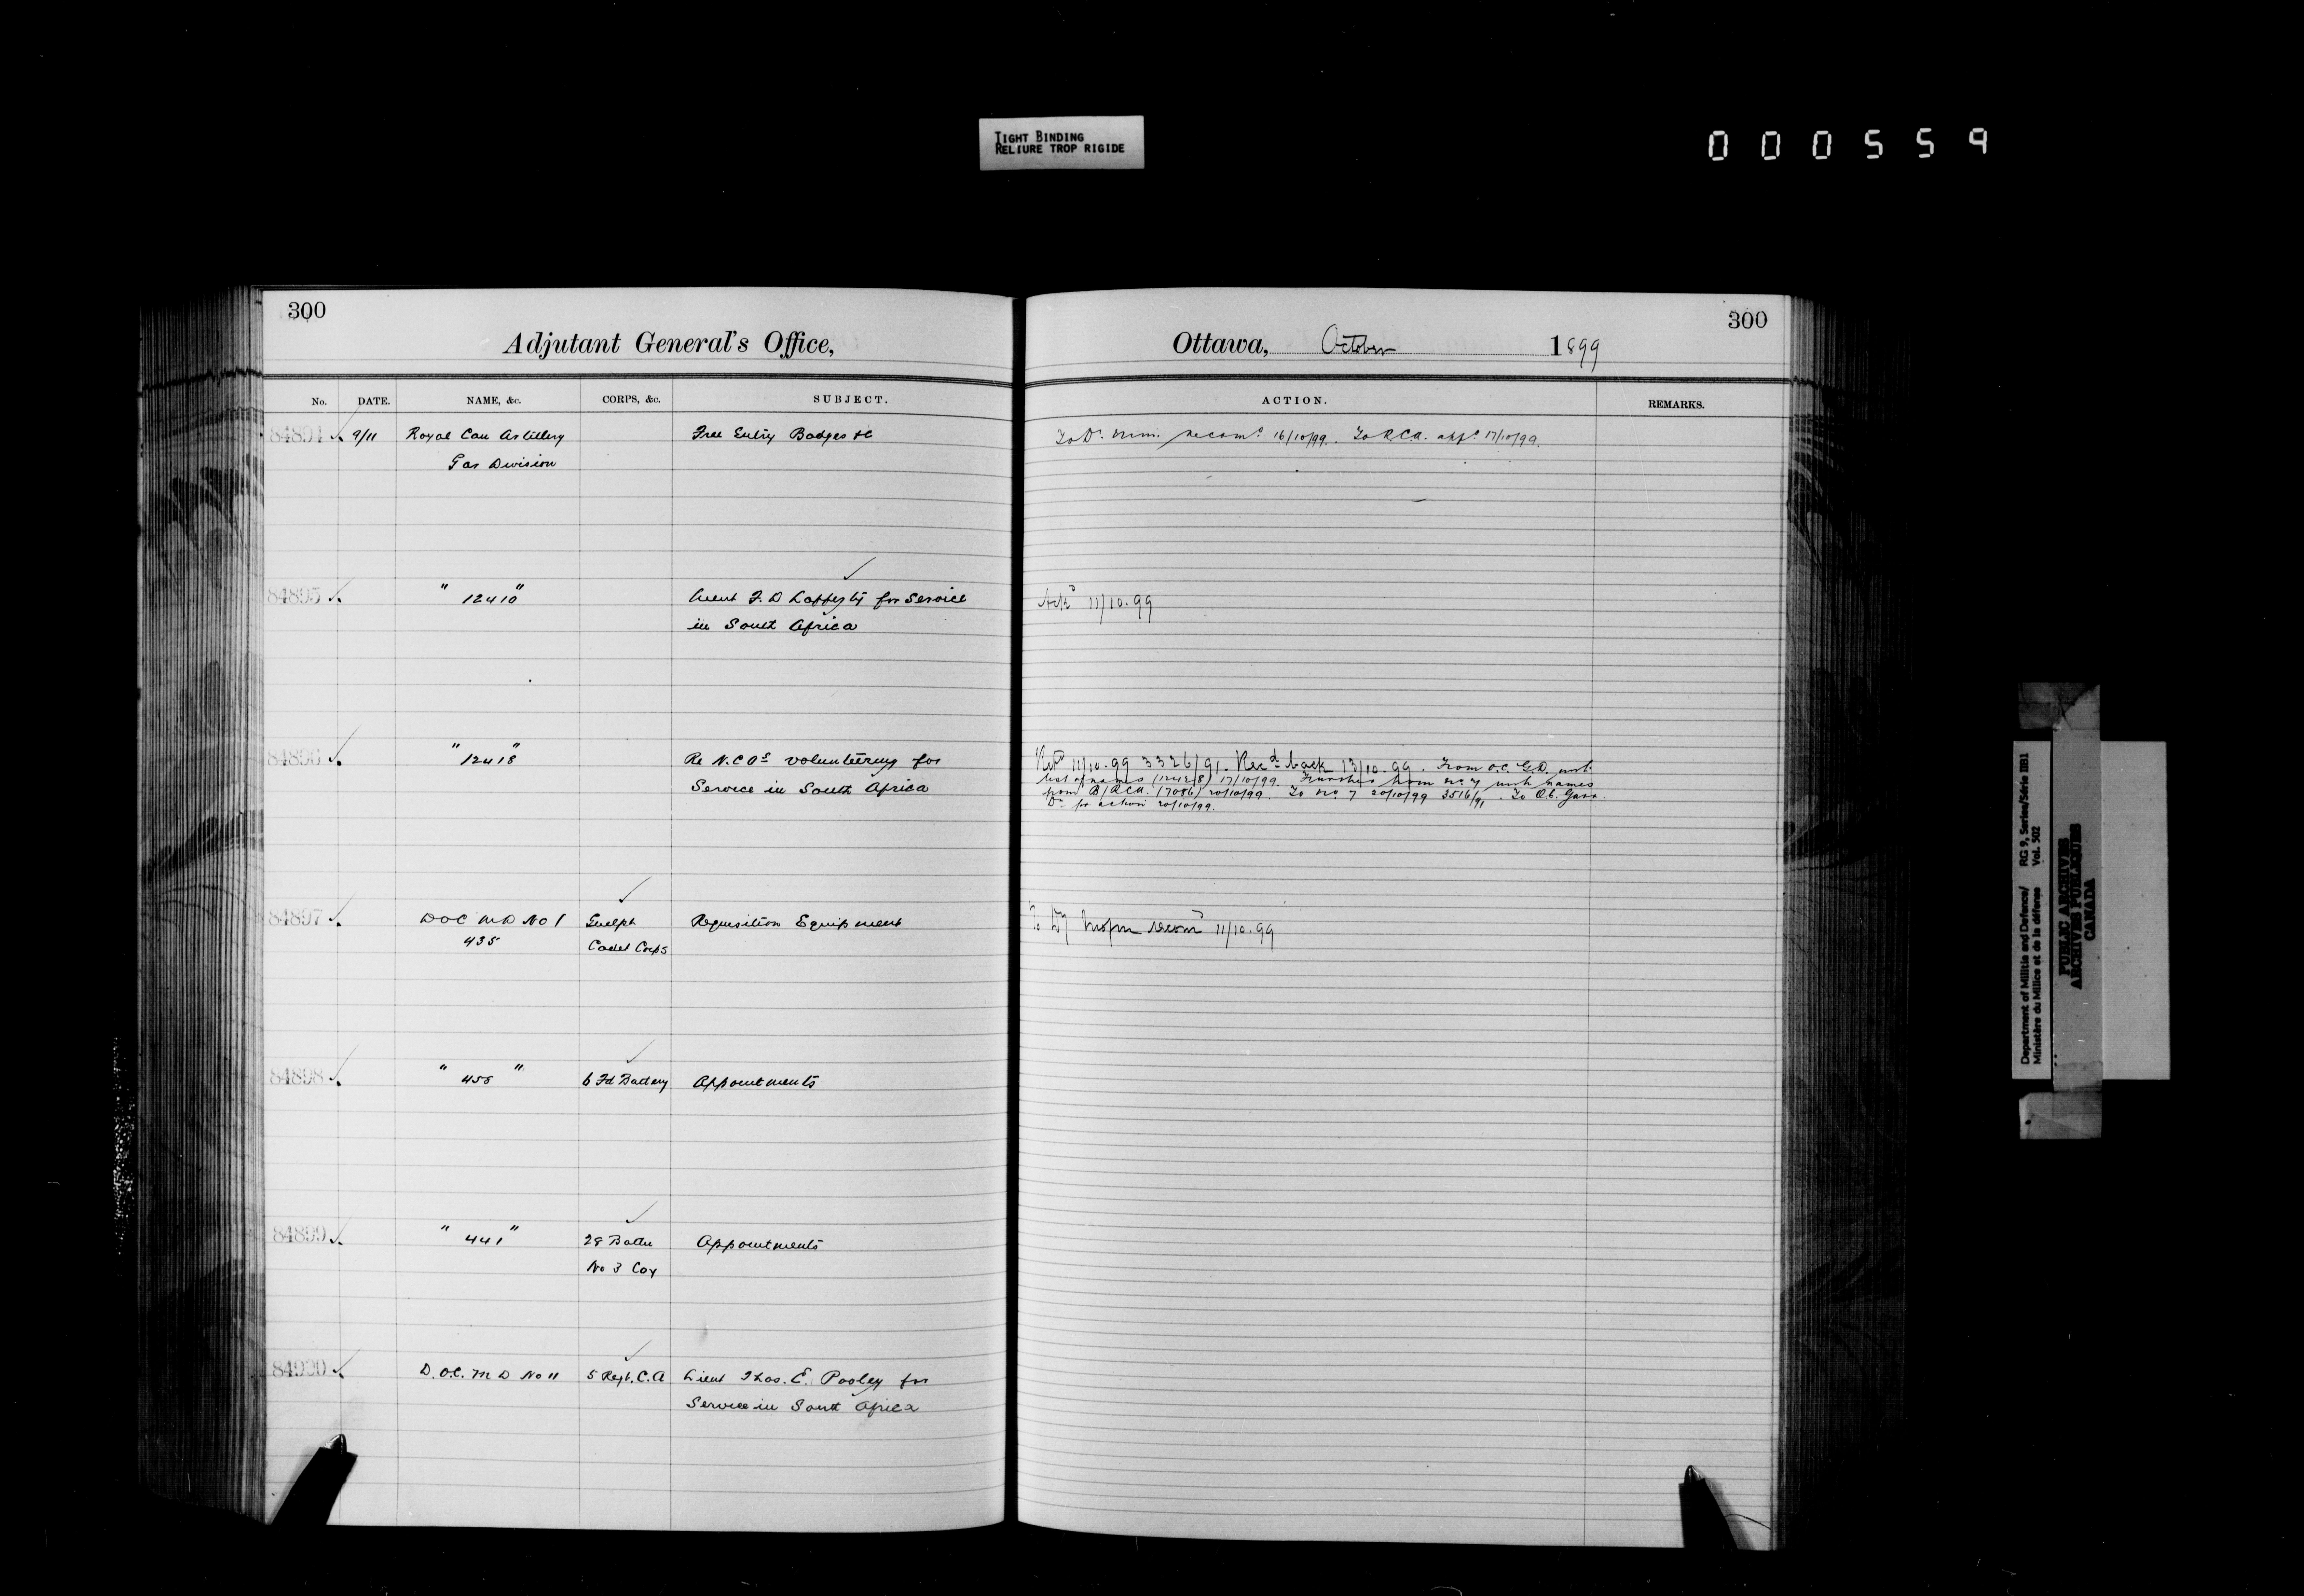 TIGHT BINDING
RELIURE TROP RIGIDE
000559
300
Adjutant General's Office,
No. DATE. NAME, &c. CORPS, &c. SUBJECT.
84894 9/11 Royal Can Artillery Free Entry Badges &c
Gar Division
84895 " 12410 " Lieut F. D Lafferty for Service
in South Africa
84896 " 12418 " Re N.C.Os volunteering for
Service in South Africa
84897 DOC MD No 1 Guelph Requisition Equipment
435 Cadet Corps
84898 " 458 " 6 Fd Battery Appointments
84899 " 441 " 28 Battn Appointments
No 3 Coy
84900 D.O.C. M D No 11 5 Regt. C.A Lieut Thos. E. Pooley for
Service in South Africa
300
Ottawa, October 1899
ACTION. REMARKS.
To D. Min. recomd 16/10/99. To R.C.A. appd 17/10/99.
Ackd 11/10.99
11/10.99 3326/91. Recd back 13/10.99. From O.C. G.D. with
list of names 17/10/99. from No 7 with names
from B/RCA. 20/10/99. To No. 7 20/10/99 3516/91. To O.C. Garr.
Dn for action 20/10/99.
recomd 11/10.99
Department of Militia and Defence/ RG 9, Series/Série IIB1
Ministère du Milice et de la défense Vol. 502
PUBLIC ARCHIVES
ARCHIVES PUBLIQUES
CANADA